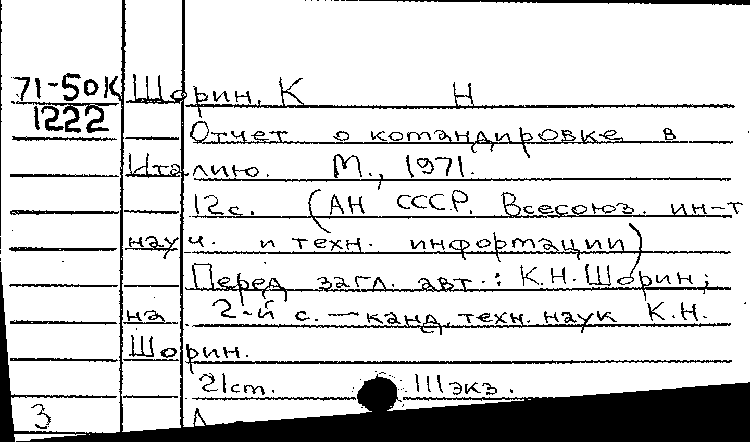 71-50К Шорин, К Н
1222
Отчет о командировке в
Италию. М., 1971.
12 с. (АН СССР. Всесоюз. ин-т
науч. и техн. информации)
Перед загл. авт.: К.Н. Шорин;
на 2-й с. — канд. техн. наук К.Н.
Шорин.
21 cm. III экз.
3